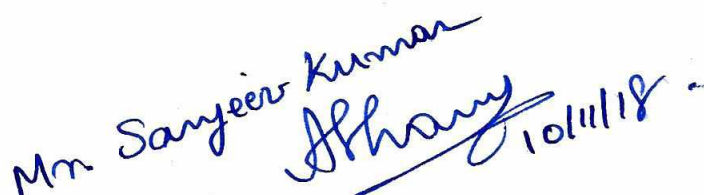 Mr. Sanjeev Kumar
10/11/18